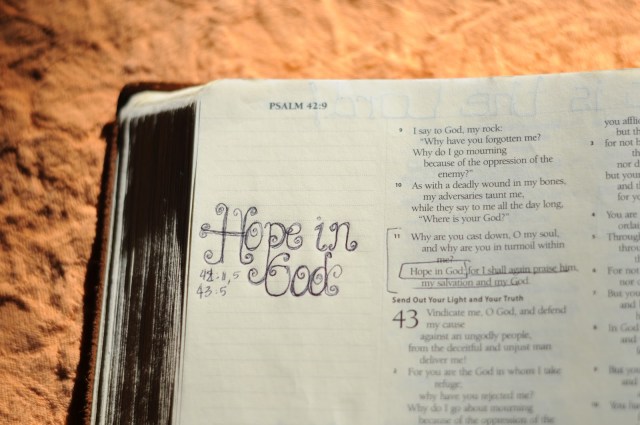 PSALM 42:9
Hope in
God
43:5
9 I say to God, my rock:
"Why have you forgotten me?
Why do I go mourning
because of the oppression of the
enemy?"
10 As with a deadly wound in my bones,
my adversaries taunt me,
while they say to me all the day long,
"Where is your God?"
11 Why are you cast down, O my soul,
and why are you in turmoil within
me?
Hope in God; for I shall again praise him,
my salvation and my God.
Send Out Your Light and Your Truth
43 Vindicate me, O God, and defend
my cause
against an ungodly people,
from the deceitful and unjust man
deliver me!
2 For you are the God in whom I take
refuge;
why have you rejected me?
Why do I go about mourning
because of the oppression of the
you
but th
3 for not
nor d
but your
and
for yo
4 You are
5 Through
6 For no
nor
7 But you
and
8 In God
and
But you
and